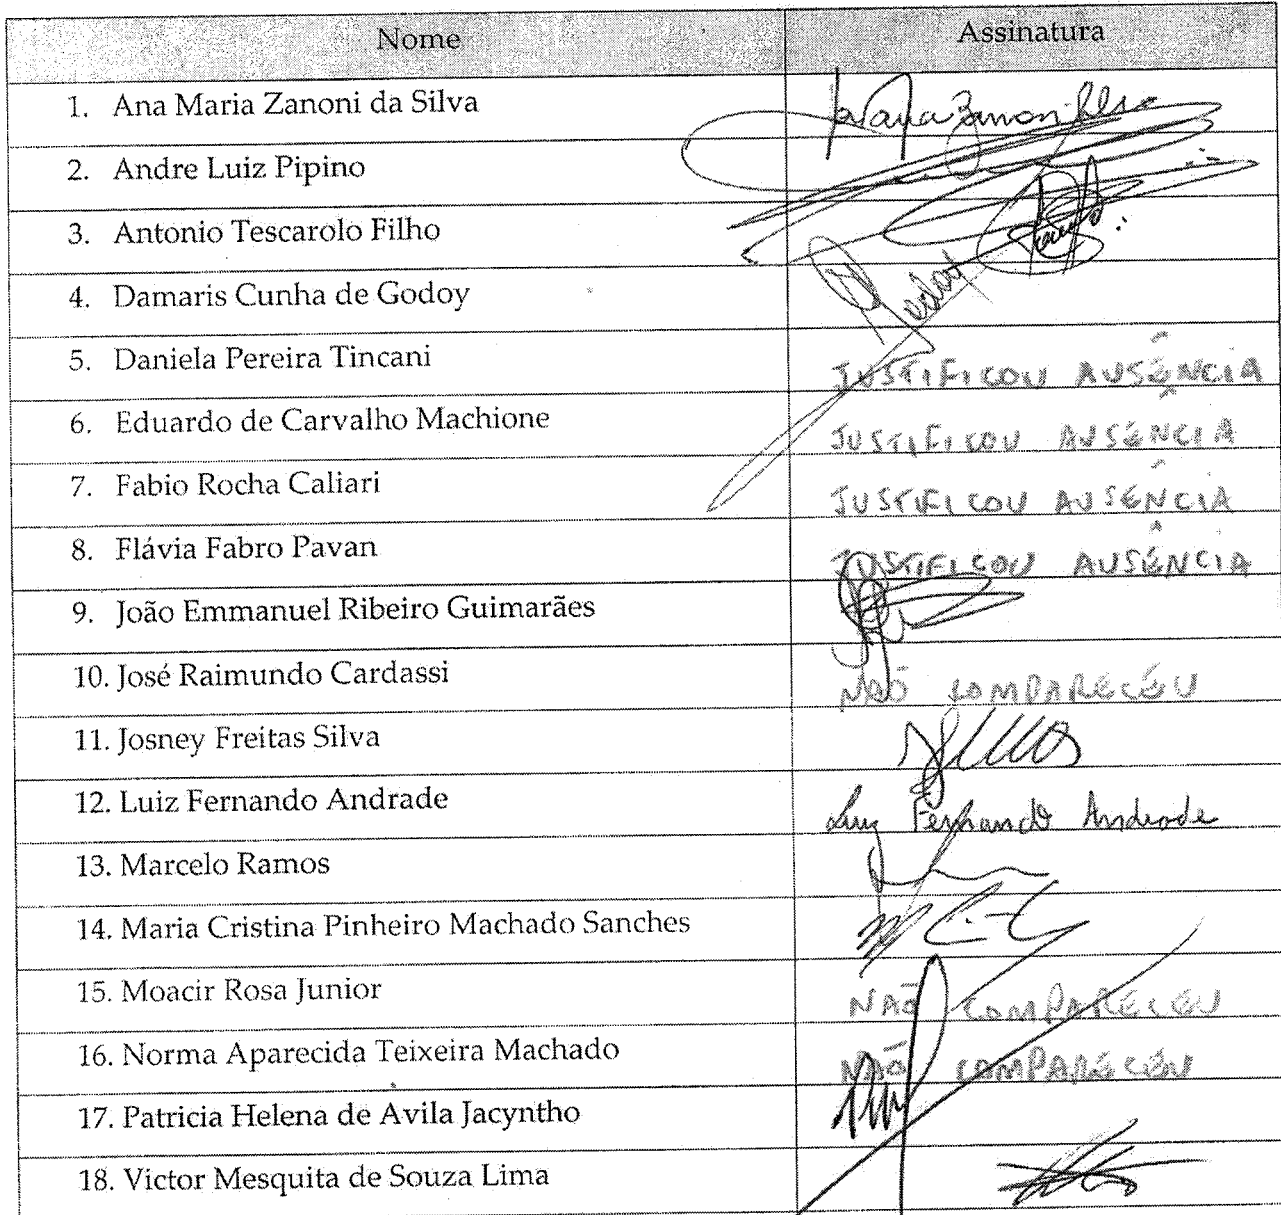 Nome Assinatura
1. Ana Maria Zanoni da Silva
2. Andre Luiz Pipino
3. Antonio Tescarolo Filho
4. Damaris Cunha de Godoy
5. Daniela Pereira Tincani JUSTIFICOU AUSÊNCIA
6. Eduardo de Carvalho Machione JUSTIFICOU AUSÊNCIA
7. Fabio Rocha Caliari JUSTIFICOU AUSÊNCIA
8. Flávia Fabro Pavan JUSTIFICOU AUSÊNCIA
9. João Emmanuel Ribeiro Guimarães
10. José Raimundo Cardassi NÃO COMPARECEU
11. Josney Freitas Silva
12. Luiz Fernando Andrade Luiz Fernando Andrade
13. Marcelo Ramos
14. Maria Cristina Pinheiro Machado Sanches
15. Moacir Rosa Junior NÃO COMPARECEU
16. Norma Aparecida Teixeira Machado NÃO COMPARECEU
17. Patricia Helena de Avila Jacyntho
18. Victor Mesquita de Souza Lima